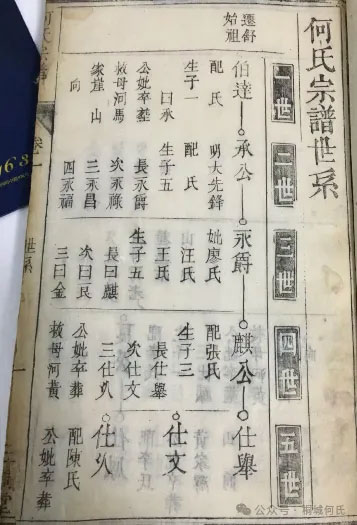 何氏宗譜世系
一世 二世 三世 四世 五世
遷舒
始祖
伯達 承公 永爵 麒公 仕舉
配氏 明大先鋒 妣廖氏 配張氏
生子一 配氏 汪氏 生子三
曰承 生子五 王氏 長仕舉 仕文
公妣卒塟 長永爵 生子五 次仕文
母河馬 次永祿 長曰麒
家崖山 三永昌 次曰民 公妣卒葬 配陳氏
向 四永福 三曰金 母河黃 公妣卒葬
卷一
世系
一
公众号·桐城何氏